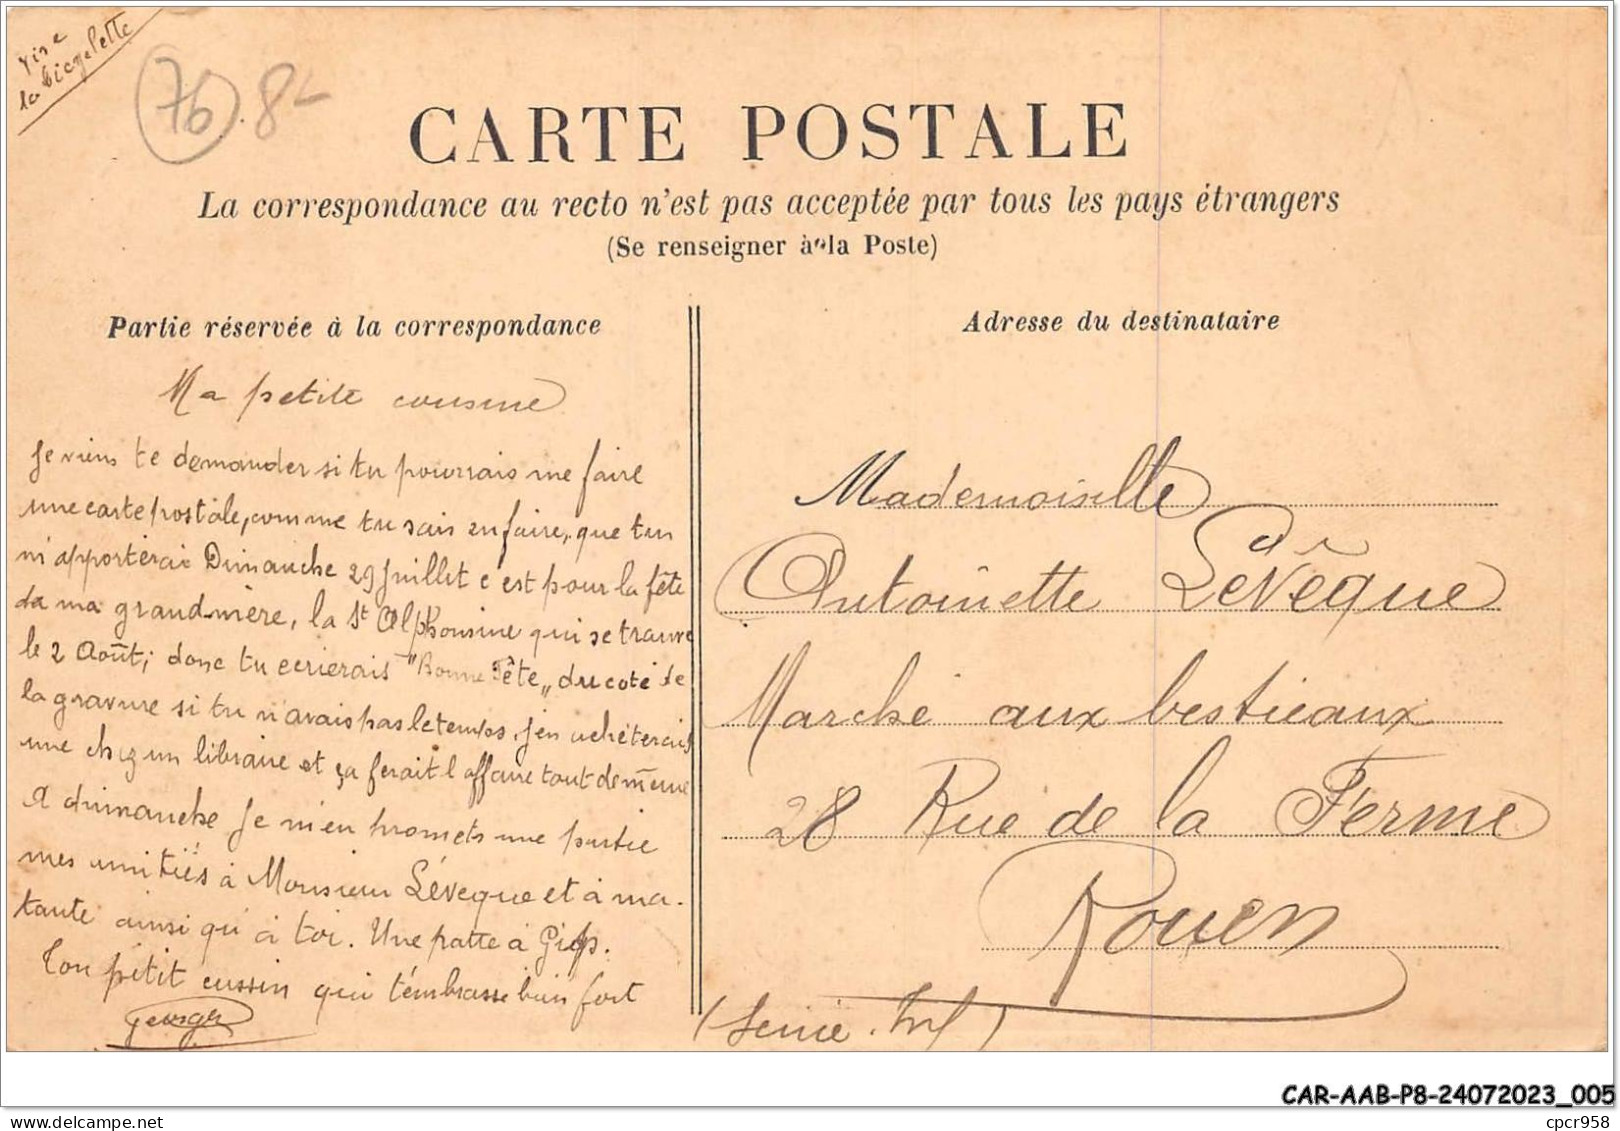 Vise
la bicyclette
76 8
CARTE POSTALE
La correspondance au recto n'est pas acceptée par tous les pays étrangers
(Se renseigner à la Poste)
Partie réservée à la correspondance
Ma petite cousine
Je viens te demander si tu pourrais me faire
une carte postale, comme tu sais en faire, que tu
m'apporterai Dimanche 29 Juillet c est pour la fête
da ma grand-mère, la St Alphonsine qui se trouve
le 2 Août; donc tu ecrierais "Bonne Fête" du coté de
la gravure si tu n'avais pas le temps, j'en achèterais
une chez un libraire et ça ferait l affaire tout de même
A dimanche Je m'en promets une partie
mes amitiés à Monsieur Lévêque et à ma
tante ainsi qu'à toi. Une patte à Gip.
Ton petit cussin qui t'émbrasse bien fort
Georges
Adresse du destinataire
Mademoiselle
Antoinette Levêque
Marché aux bestieaux
28 Rue de la Ferme
Rouen
(Seine. Inf)
CAR-AAB-P8-24072023_005
cpcr958